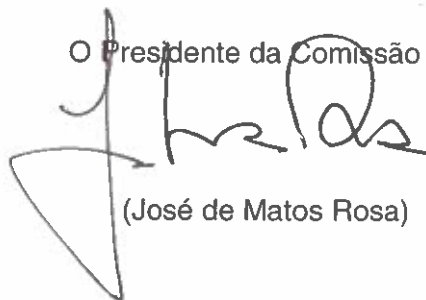 O Presidente da Comissão
(José de Matos Rosa)